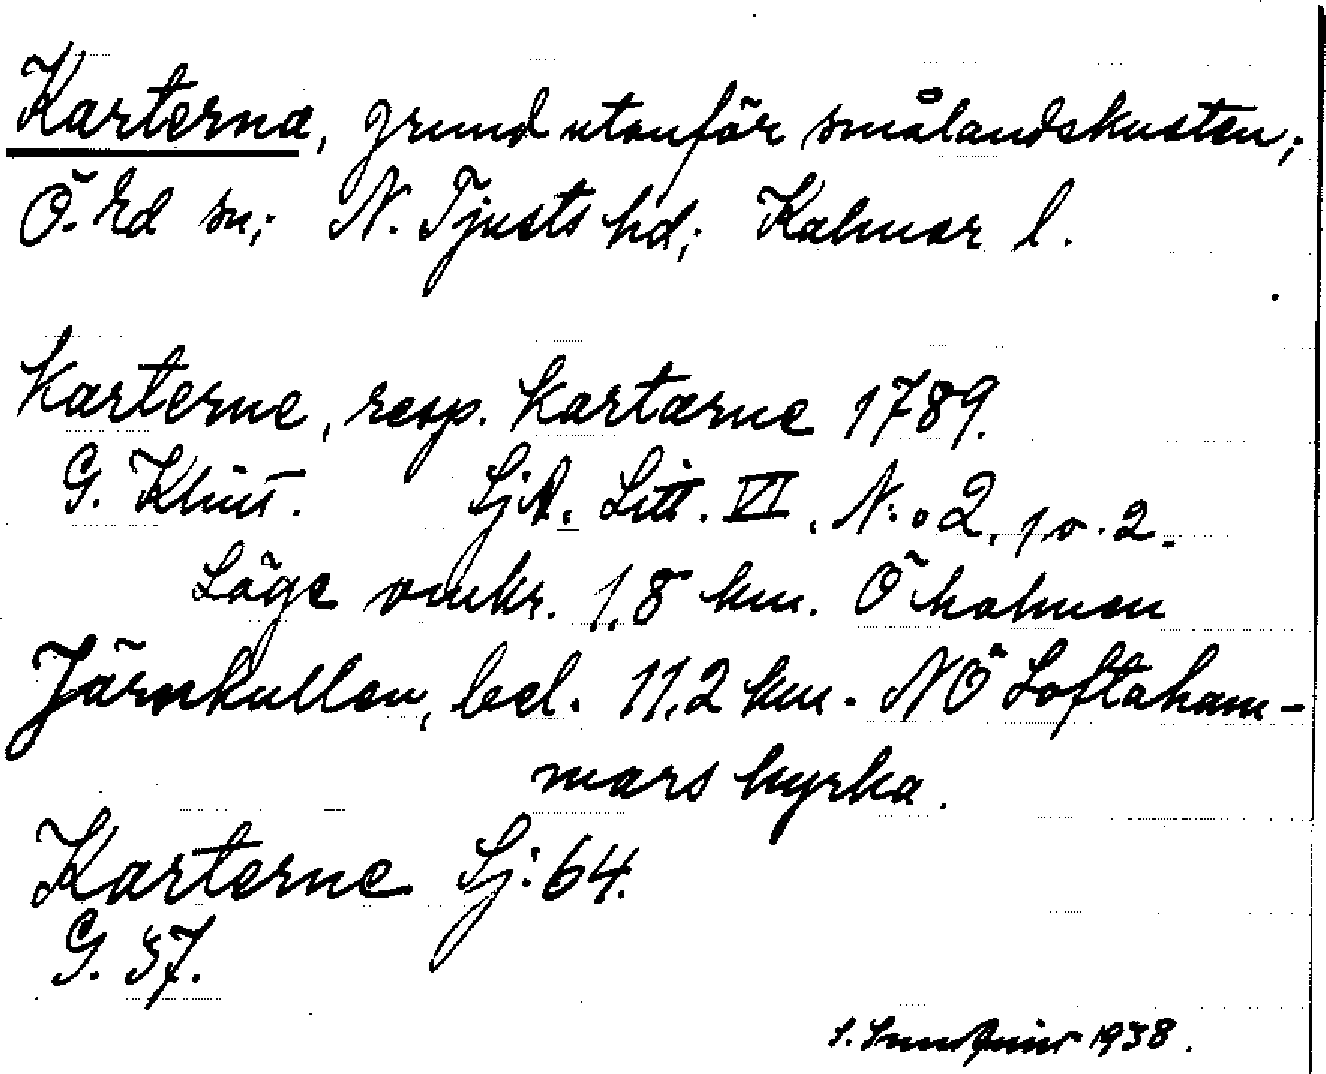 Karterna, grund utanför smålandskusten;
Ö. Ed sn; N. Tjusts hd; Kalmar l.
Karterne, resp. Kartarne 1789.
G. Klint. SjA. Litt. VI. N:o 2, 1 o. 2.
Läge omkr. 1,8 km. Ö holmen
Järnkullen, bel. 11,2 km. NÖ Loftaham-
mars kyrka.
Karterne Sj: 64.
G. 37.
1938.